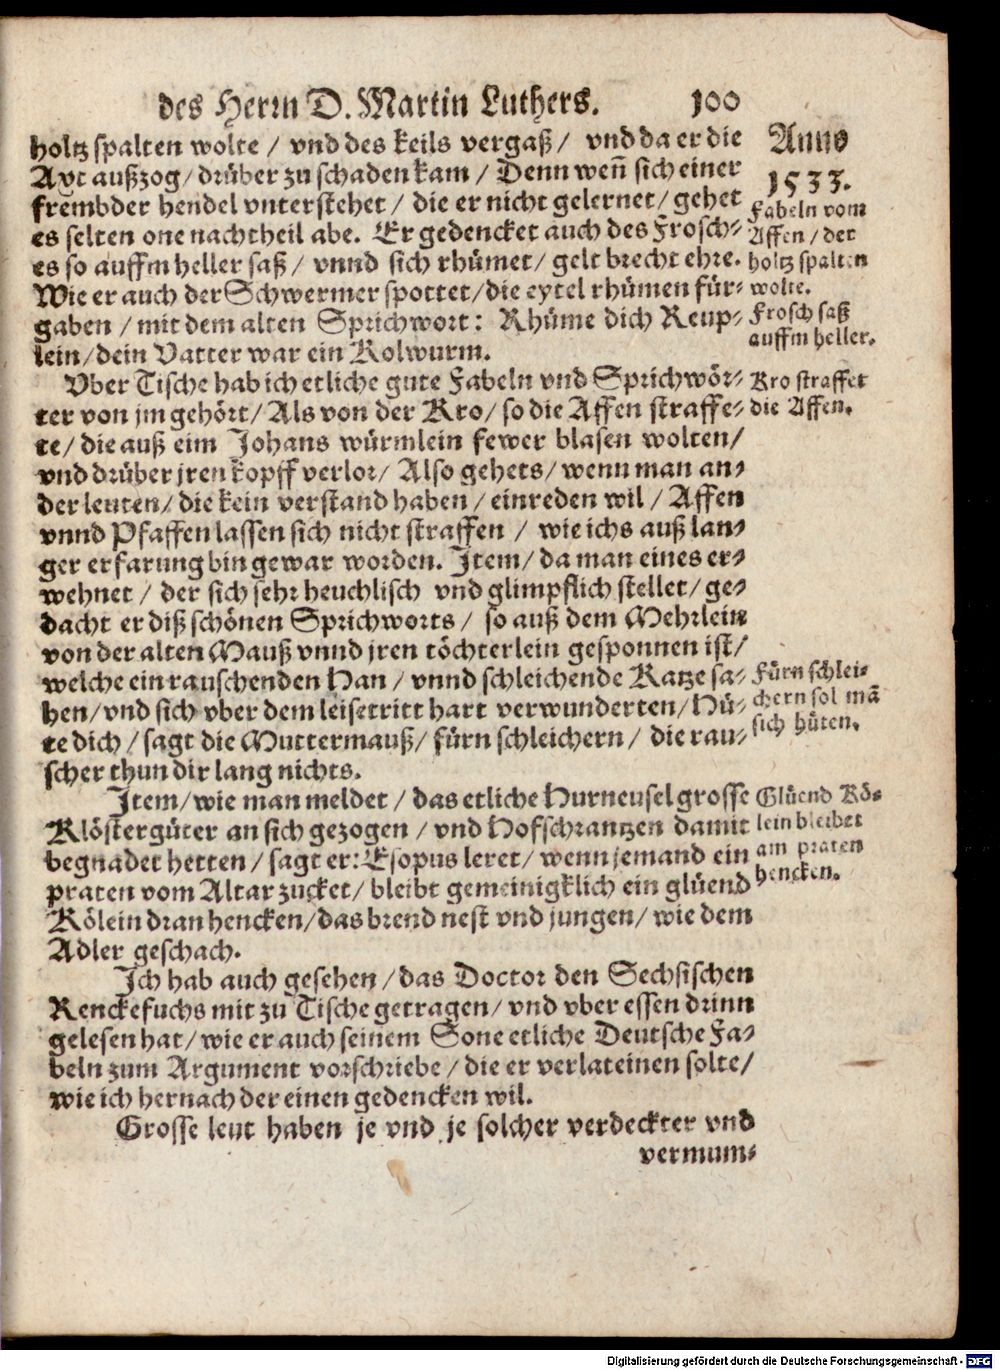 des Herrn D. Martin Luthers. 100
holtz spalten wolte / vnd des keils vergaß / vnd da er die
Axt außzog / drüber zu schaden kam / Denn weñ sich einer
frembder hendel vnterstehet / die er nicht gelernet / gehet
es selten one nachtheil abe. Er gedencket auch des Frosch-
es so auffm heller saß / vnnd sich rhümet / gelt brecht ehre.
Wie er auch der Schwermer spottet / die eytel rhümen für-
gaben / mit dem alten Sprichwort: Rhüme dich Reup-
lein / dein Vatter war ein Kolwurm.
Vber Tische hab ich etliche gute Fabeln vnd Sprichwör-
ter von jm gehört / Als von der Kro / so die Affen straffe-
te / die auß eim Johans würmlein fewer blasen wolten /
vnd drüber jren kopff verlor / Also gehets / wenn man an-
der leuten / die kein verstand haben / einreden wil / Affen
vnnd Pfaffen lassen sich nicht straffen / wie ichs auß lan-
ger erfarung bin gewar worden. Item / da man eines er-
wehnet / der sich sehr heuchlisch vnd glimpflich stellet / ge-
dacht er diß schönen Sprichworts / so auß dem Mehrlein
von der alten Mauß vnnd jren töchterlein gesponnen ist /
welche ein rauschenden Han / vnnd schleichende Katze sa-
hen / vnd sich vber dem leisetritt hart verwunderten / Hü-
te dich / sagt die Muttermauß / fürn schleichern / die rau-
scher thun dir lang nichts.
Item / wie man meldet / das etliche Hurneusel grosse
Klöstergüter an sich gezogen / vnd Hofschrantzen damit
begnadet hetten / sagt er: Esopus leret / wenn jemand ein
praten vom Altar zucket / bleibt gemeinigklich ein glüend
Kölein dran hencken / das brend nest vnd jungen / wie dem
Adler geschach.
Ich hab auch gesehen / das Doctor den Sechsischen
Renckefuchs mit zu Tische getragen / vnd vber essen drinn
gelesen hat / wie er auch seinem Sone etliche Deutsche Fa-
beln zum Argument vorschriebe / die er verlateinen solte /
wie ich hernach der einen gedencken wil.
Grosse leut haben je vnd je solcher verdeckter vnd
vermum-
Anno
1533.
Fabeln vom
Affen / der
holtz spalten
wolte.
Frosch saß
auffm heller.
Kro straffet
die Affen.
Fürn schlei-
chern sol mã
sich hüten.
Glüend Kö-
lein bleibet
am praten
hencken.
Digitalisierung gefördert durch die Deutsche Forschungsgemeinschaft - DFG